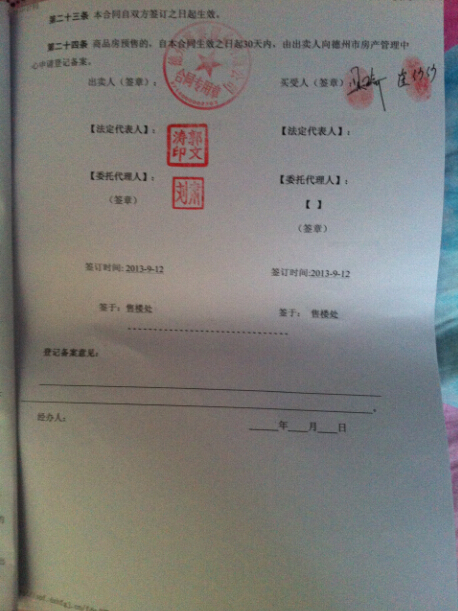 第二十三条 本合同自双方签订之日起生效。
第二十四条 商品房预售的，自本合同生效之日起30天内，由出卖人向德州市房产管理中
心申请登记备案。
出卖人（签章）： 买受人（签章）
合同专用章
【法定代表人】： 【法定代表人】：
郭文涛印
【委托代理人】： 【委托代理人】：
刘
【 】
（签章） （签章）
签订时间:2013-9-12 签订时间:2013-9-12
签于： 售楼处 签于： 售楼处
登记备案意见：
经办人： 年 月 日